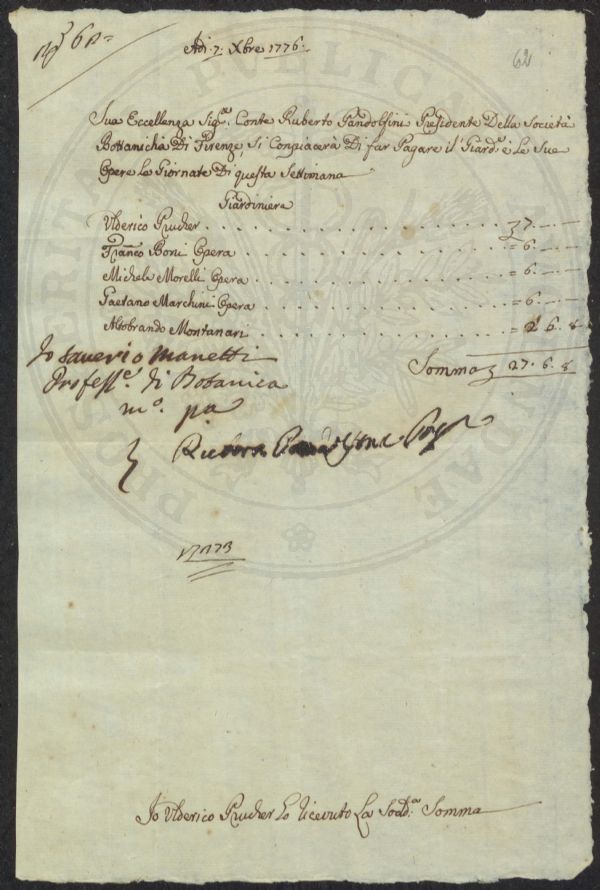 N° 62
62
Adi 7: Xbre 1776:
Sua Eccellenza Sig.re Conte Ruberto Pandolfini Presidente Della Società
Bottanicha Di Firenze, Si Conpiacerà Di far Pagare il Giard.e è le Sue
Opere le Giornate Di questa Settimana
Giardiniera
Ulderico Prucher . . . . . . . . . . 7. —
Franco Boni Opera . . . . . . . . . = 6. —
Michele Morelli Opera . . . . . . . . = 6. —
Gaetano Marchini Opera . . . . . . . . = 6. —
Aldobrando Montanari . . . . . . . . = 2 6. 8
Somma 27. 6. 8
Io Saverio Manetti
Profess.e di Botanica
m.o pa
Pandolfini
Io Ulderico Prucher ho Ricevuto La Sodd.a Somma